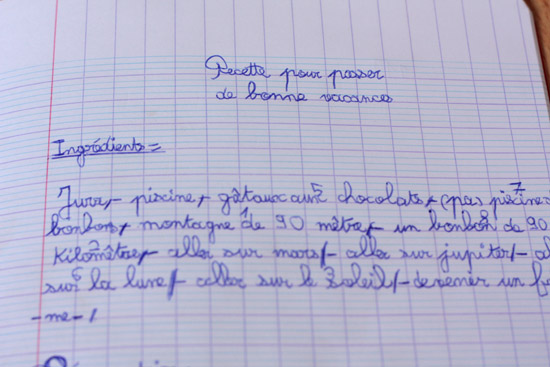 Recette pour passer
de bonne vacances
Ingrédients =
piscine, gâteaux aux 5 chocolats, (pas) piscine 7
bonbons, montagne de 90 mètres, un bonbon de 90
Kilomètres, aller sur mars, aller sur jupiter,
sur la lune, aller sur le Soleil, devenir un
-me-